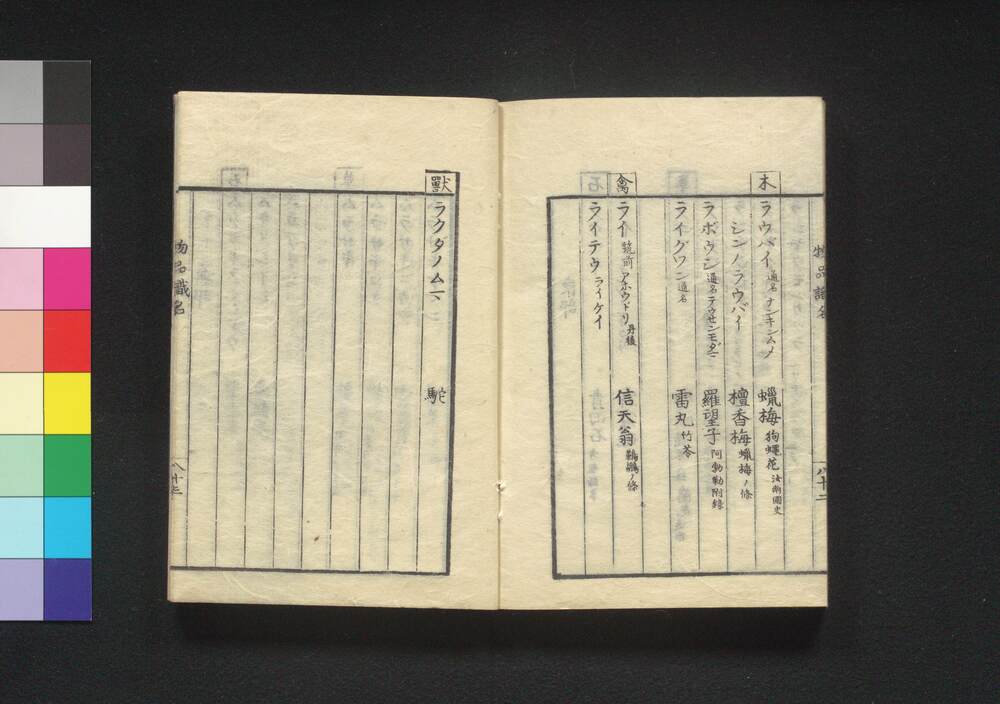 物品識名
木
ラウバイ 通名 ナンキンムメ 蠟梅 狗蠅花 汝南圃史
シンノラウバイ 檀香梅 蠟梅ノ條
ラボウシ 通名 テウセンモダマ 羅望子 阿勃勒附錄
ライグワン 通名 雷丸 竹苓
禽
ライ 筑前 アホウドリ 丹後 信天翁 鵜鶘ノ條
ライテウ ライケイ
八十二
獸
ラクダノムマ 駝
物品識名
八十二